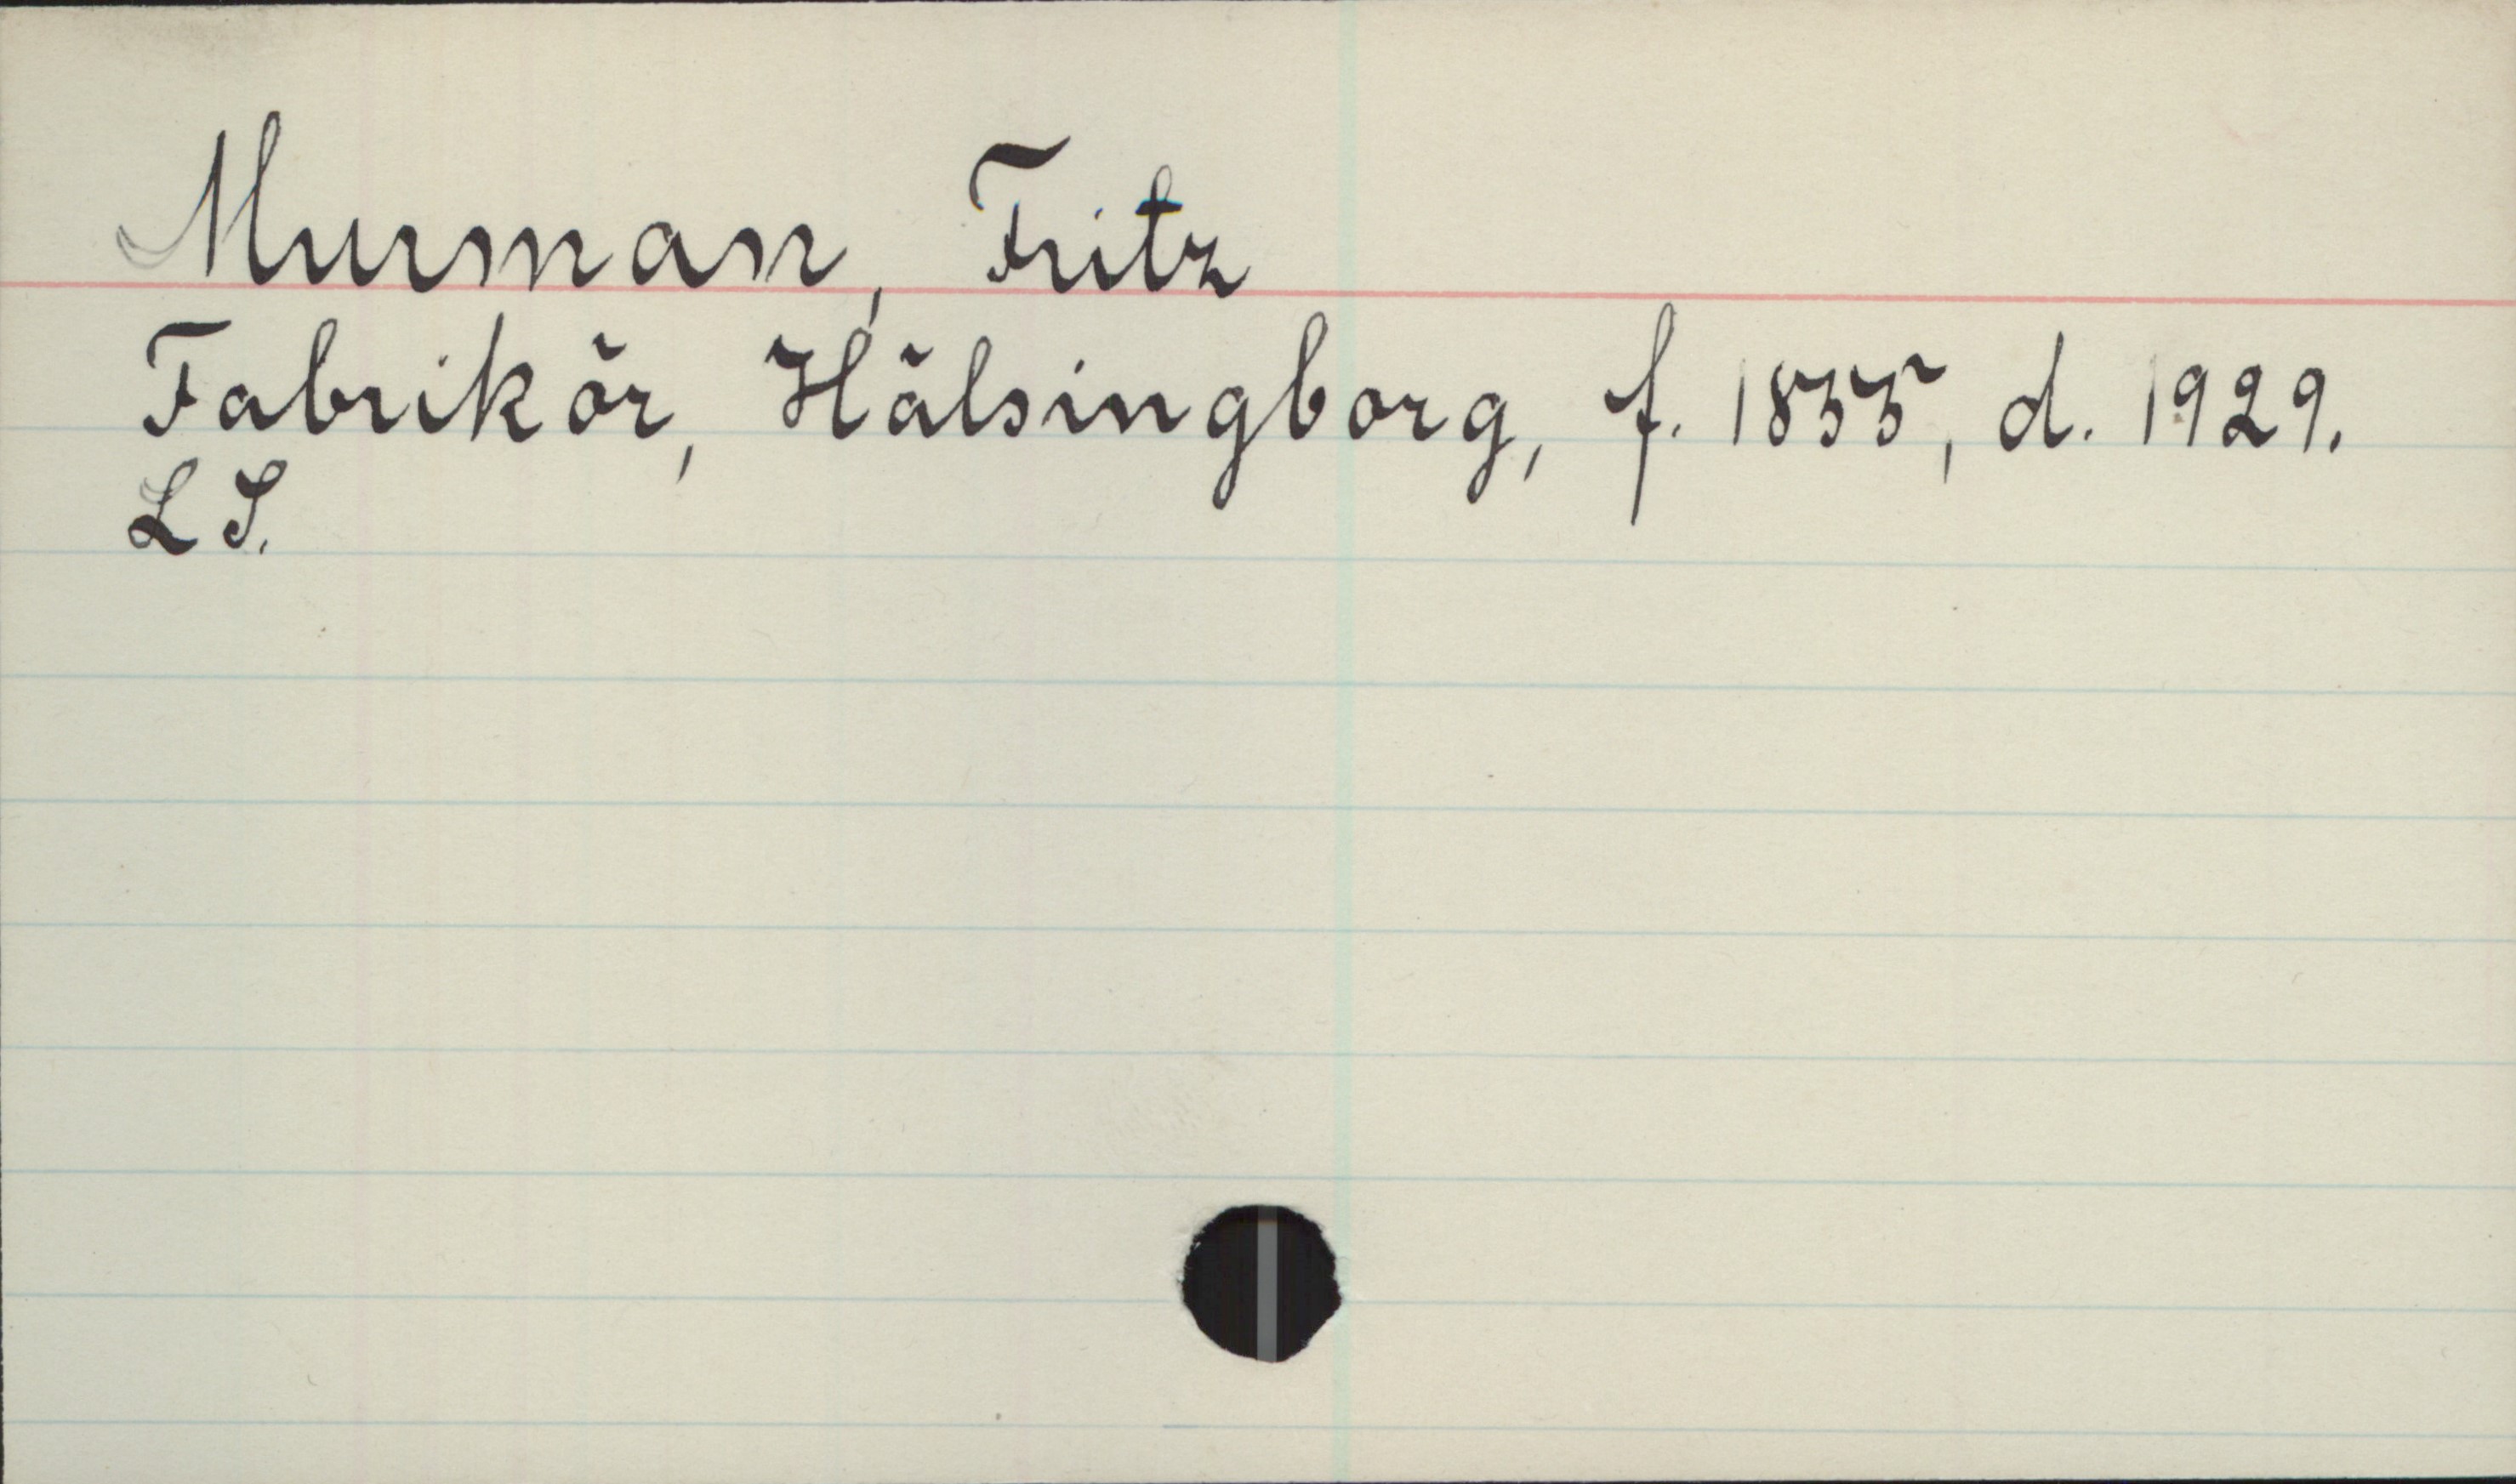 Murman, Fritz
Fabrikör, Hälsingborg, f. 1855, d. 1929.
L S.